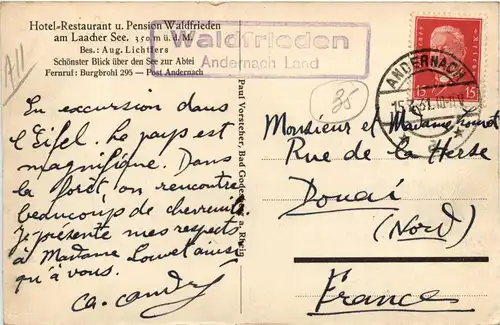 Hotel-Restaurant u. Pension Waldfrieden
am Laacher See. 350 m ü. N.M.
Bes.: Aug. Lichtfers
Schönster Blick über den See zur Abtei
Fernruf: Burgbrohl 295 — Post Andernach
A11
Waldfrieden
Andernach Land
35
ANDERNACH
15
15
En excursion dans
l'Eifel. Le pays est
magnifique. Dans
la forêt, on rencontre
beaucoup de chevreuils
Je présente mes respects
à Madame Louvet ainsi
qu'à vous.
Paul Vorsteher, Bad Godesberg a. Rhein
Monsieur et Madame Louvet
Rue de la Herse
Douai
(Nord)
France